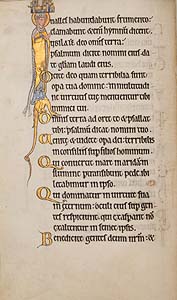 ualles habundabunt frumento
clamabunt & enim hymnum dicent
Iubilate deo omnis terra
psalmum dicite nomini eius: da
te gloriam laudi eius.
Dicite deo quam terribilia sunt
opera tua domine: in multitudi
ne uirtutis tue mentientur tibi
inimici tui.
Omnis terra adoret te & psallat
tibi: psalmum dicat nomini tuo.
Venite & uidete opera dei: terri
bilis in consiliis super filios hominum.
Qui conuertit mare in aridam in
flumine pertransibunt pede: ibi le
tabimur in ipso.
Qui dominatur in uirtute sua
in eternum: oculi eius super gen
tes respiciunt: qui exasperant non
exaltentur in semet ipsis.
Benedicite gentes deum nrm: &